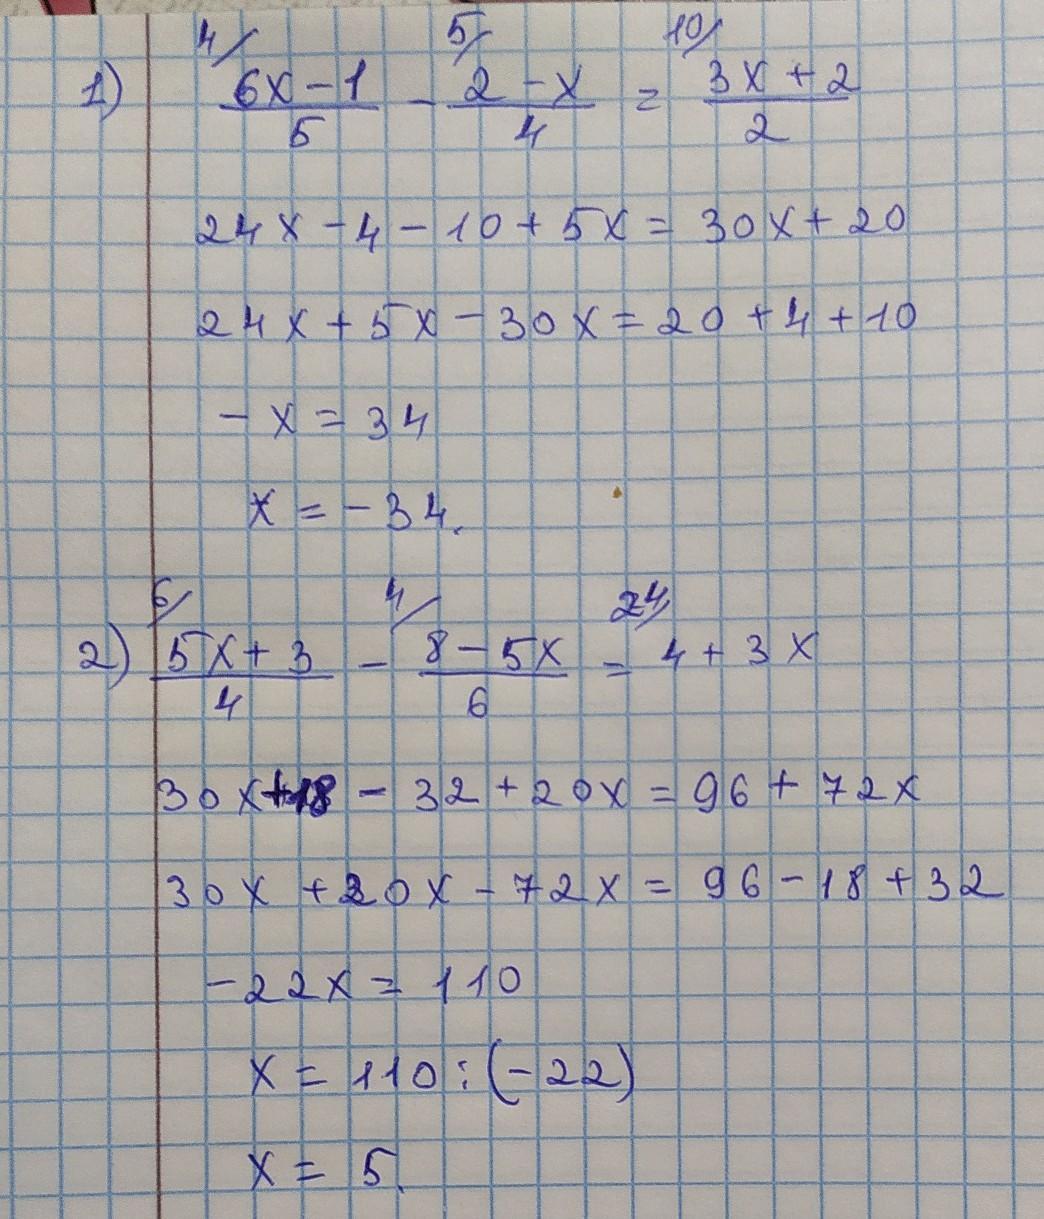 4/ 5/ 10/
1) 6x-1 - 2-x = 3x+2
5 4 2
24x-4-10+5x=30x+20
24x+5x-30x=20+4+10
-x=34
x=-34.
6/ 4/ 24/
2) 5x+3 - 8-5x = 4+3x
4 6
30x+18-32+20x=96+72x
30x+20x-72x=96-18+32
-22x=110
x=110:(-22)
x=5.